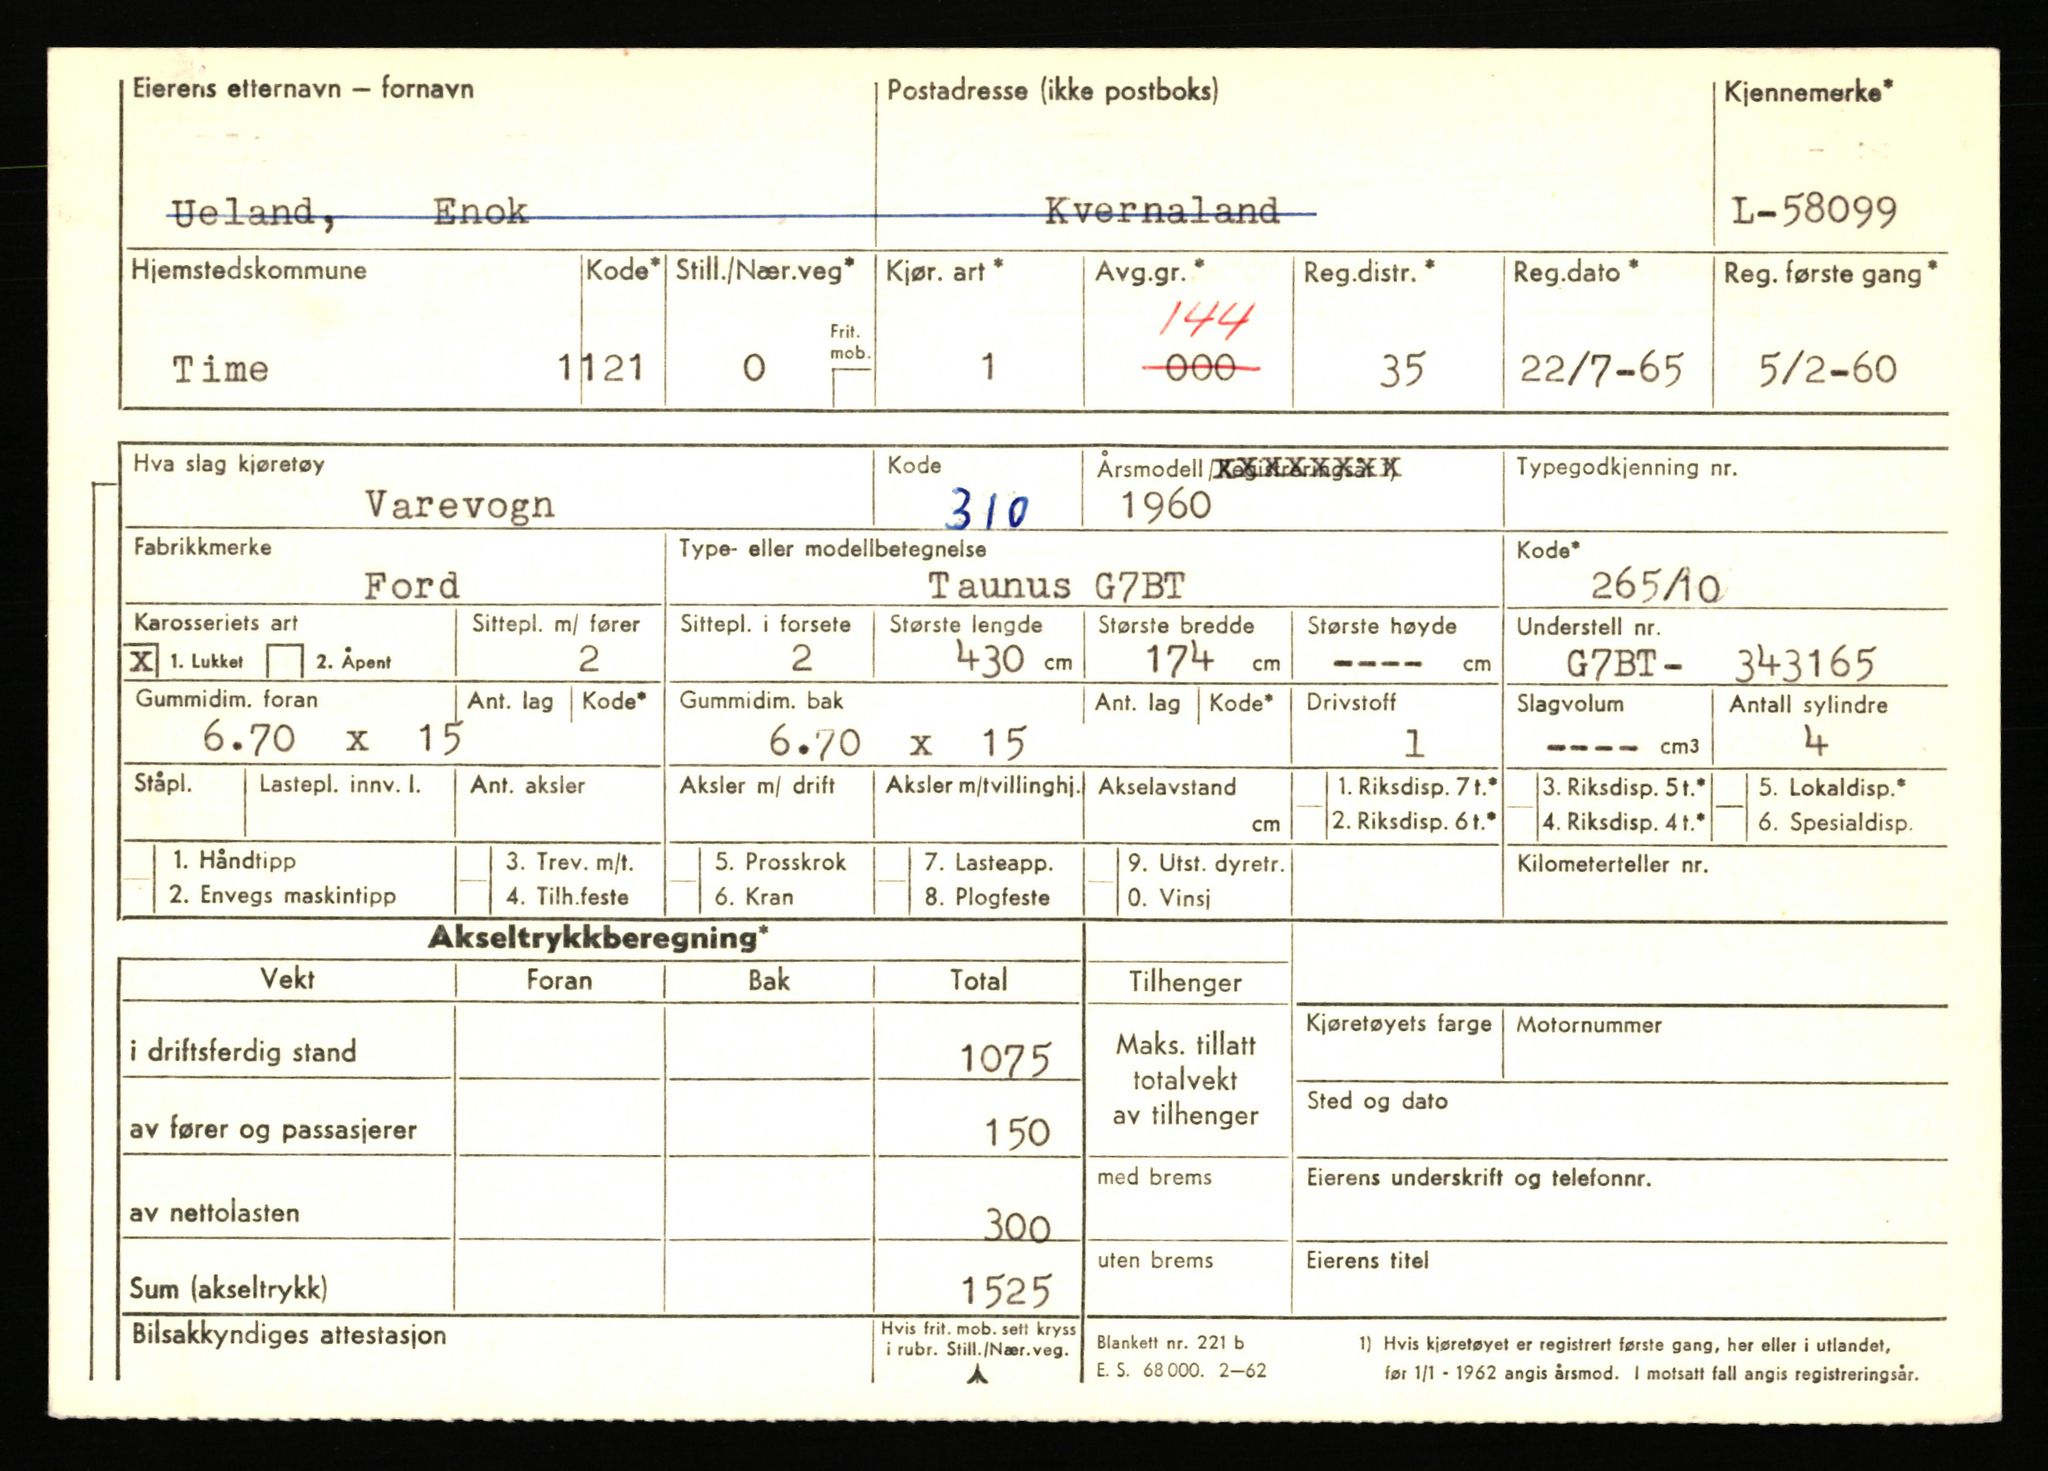 Eierens etternavn – fornavn Postadresse (ikke postboks) Kjennemerke*
Ueland, Enok Kvernaland L-58099
Hjemstedskommune Kode* Still./Nær.veg* Kjør. art* Avg.gr.* Reg.distr.* Reg.dato* Reg. første gang*
144
Frit.
mob.
Time 1121 0 1 000 35 22/7-65 5/2-60
Hva slag kjøretøy Kode Årsmodell/Registreringsår 1) Typegodkjenning nr.
Varevogn 310 1960
Fabrikkmerke Type- eller modellbetegnelse Kode*
Ford Taunus G7BT 265/10
Karosseriets art Sittepl. m/ fører Sittepl. i forsete Største lengde Største bredde Største høyde Understell nr.
X 1. Lukket 2. Åpent 2 2 430 cm 174 cm ---- cm G7BT- 343165
Gummidim. foran Ant. lag Kode* Gummidim. bak Ant. lag Kode* Drivstoff Slagvolum Antall sylindre
6.70 x 15 6.70 x 15 1 ---- cm3 4
Ståpl. Lastepl. innv. l. Ant. aksler Aksler m/ drift Aksler m/tvillinghj. Akselavstand 1. Riksdisp. 7 t.* 3. Riksdisp. 5 t.* 5. Lokaldisp.*
cm 2. Riksdisp. 6 t.* 4. Riksdisp. 4 t.* 6. Spesialdisp.
1. Håndtipp 3. Trev. m/t. 5. Prosskrok 7. Lasteapp. 9. Utst. dyretr. Kilometerteller nr.
2. Envegs maskintipp 4. Tilh.feste 6. Kran 8. Plogfeste 0. Vinsj
Akseltrykkberegning*
Vekt Foran Bak Total Tilhenger
Kjøretøyets farge Motornummer
i driftsferdig stand 1075 Maks. tillatt
totalvekt
av tilhenger
Sted og dato
av fører og passasjerer 150
med brems Eierens underskrift og telefonnr.
av nettolasten 300
uten brems Eierens titel
Sum (akseltrykk) 1525
Bilsakkyndiges attestasjon Hvis frit. mob. sett kryss
i rubr. Still./Nær.veg.
Blankett nr. 221 b
E. S. 68 000. 2–62
1) Hvis kjøretøyet er registrert første gang, her eller i utlandet,
før 1/1 - 1962 angis årsmod. I motsatt fall angis registreringsår.